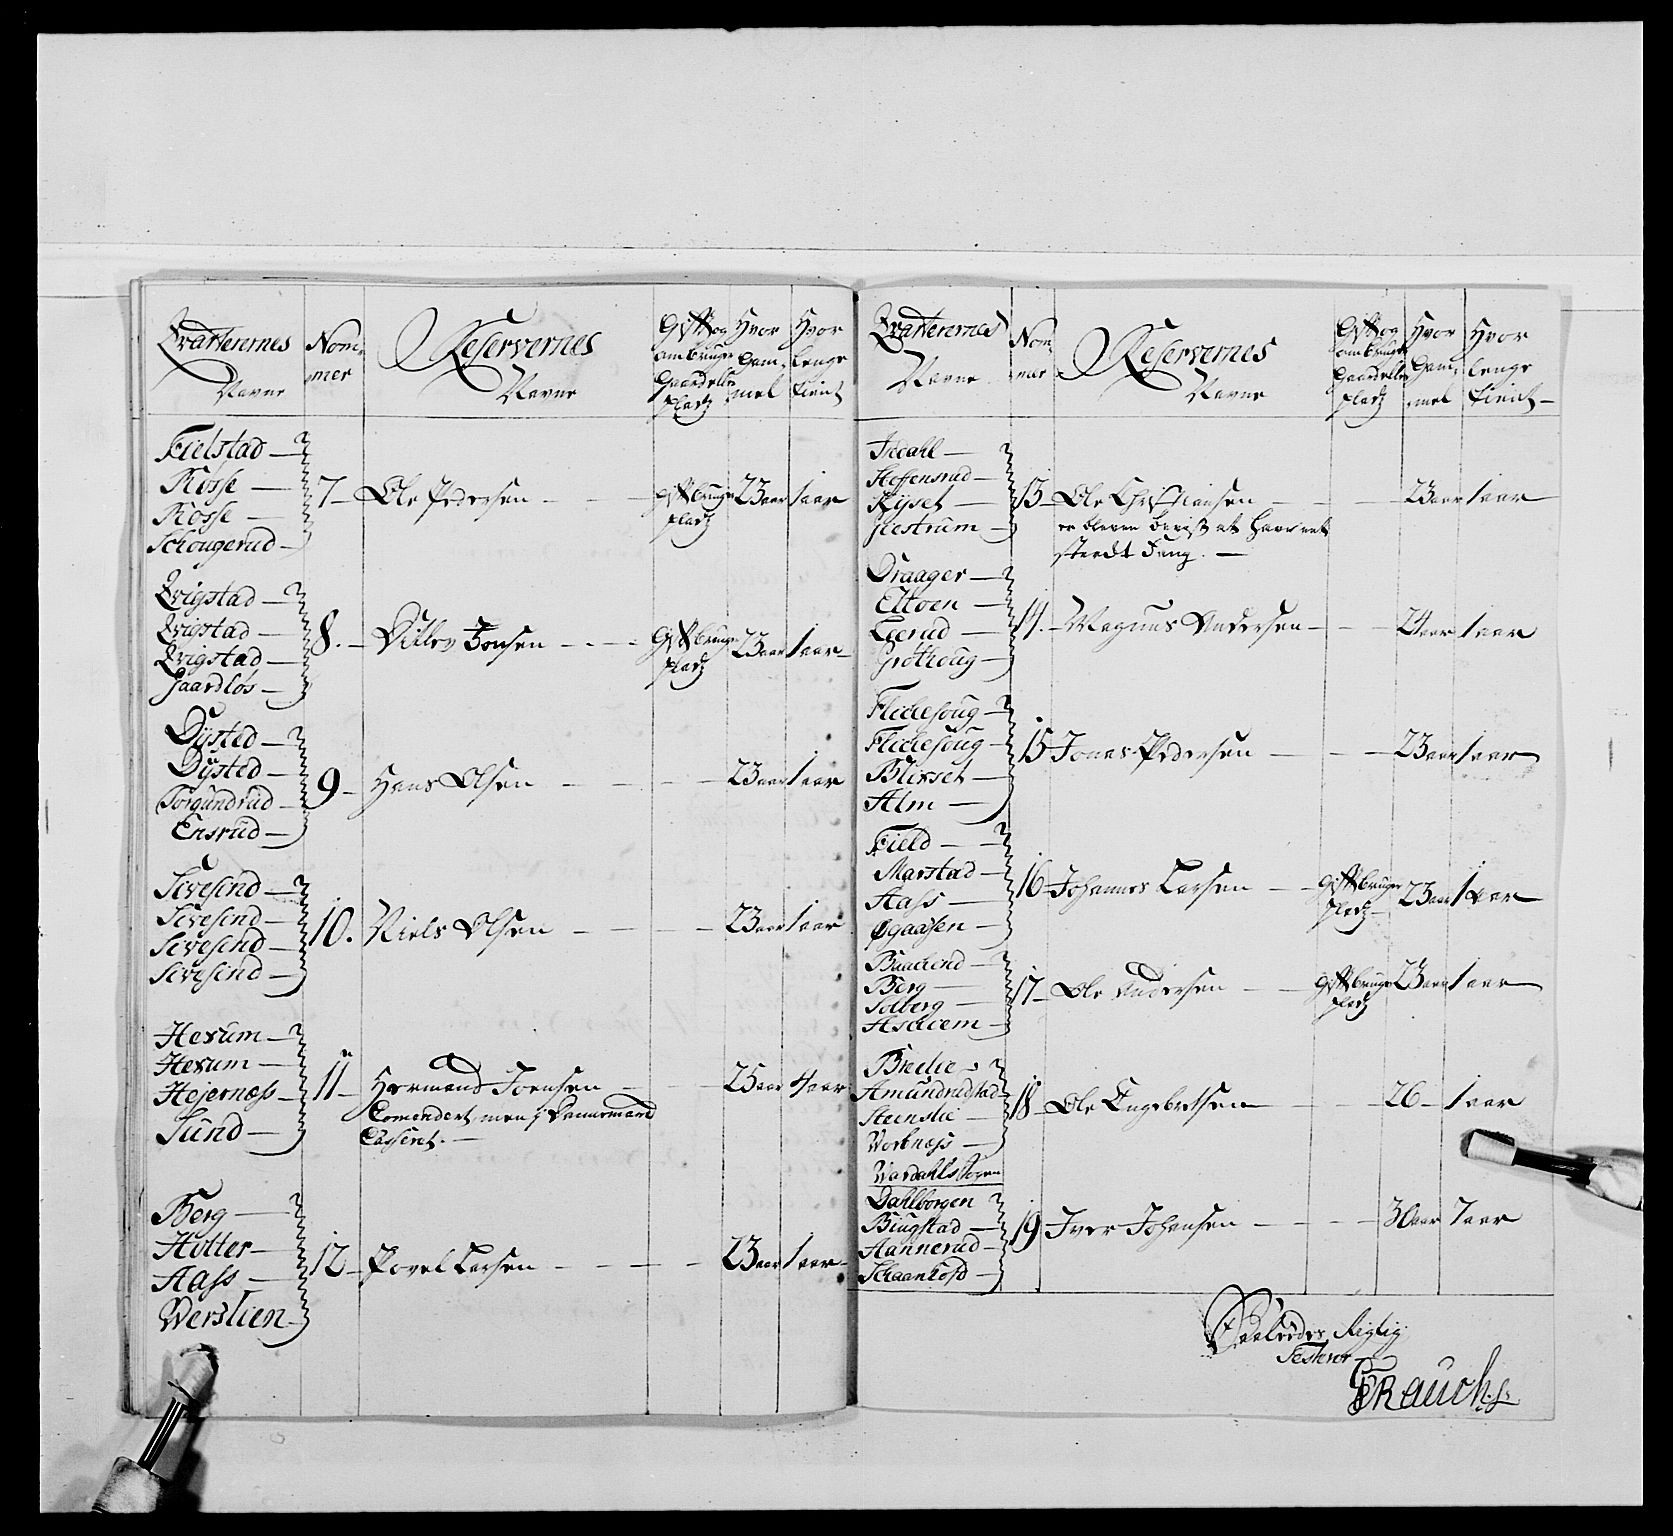 Qvarterernes
Navne
Nom-
mer
Reservernes
Navne
Gift og
ambruger
Gaard eller
Pladz
Hvor
Gam-
mel
Hvor
lenge
tient
Fielstad
Røsse
Røsse
Schougerud
7
Ole Pedersen
Gift bruger
Pladz
23 aar
1 aar
Qvigstad
Qvigstad
Qvigstad
Gaardløs
8.
Ditlev Jonsen
Gift bruger
Pladz
23 aar
1 aar
Dysted
Dysted
Torgundrud
Ensrud
9
Hans Olsen
23 aar
1 aar
Sivesind
Sivesind
Sivesind
Sivesind
10.
Niels Olsen
23 aar
1 aar
Hexum
Hexum
Hejerness
Sund
11
Hermand Joensen
25 aar
4 aar
Comendert men i Dannemark
Casseret.
Berg
Hotter
Aass
Werslien
12
Povel Larsen
23 aar
1 aar
Qvarterernes
Navne
Nom
mer
Reservernes
Navne
Gift og
ambruger
Gaard eller
Pladz
Hvor
Gam-
mel
Hvor
lenge
tient
Hoffensrud
Rÿset
Giestrum
13
Ole Christiansen
23 aar
1 aar
er bleven
Draager
Eltoen
Egerud
Grøthoug
14.
Magnus Andersen
24 aar
1 aar
Flichesoug
Flichesoug
Blixset
Alm
15
Jonas Pedersen
23 aar
1 aar
Field
Marstad
Aass
Øgaasen
16
Johannes Larsen
Gift bruger
Pladz
23 aar
1 aar
Berg
Solberg
17
Ole Andersen
Gift bruger
Pladz
23 aar
1 aar
Bredlie
Amundrudstad
Steenslie
18
Ole Engebretsen
26
1 aar
Dahlborgen
Bingstad
Aannerud
19
Iver Johansen
30 aar
7 aar
Saaledes Rigtig
Testerer
Rauch